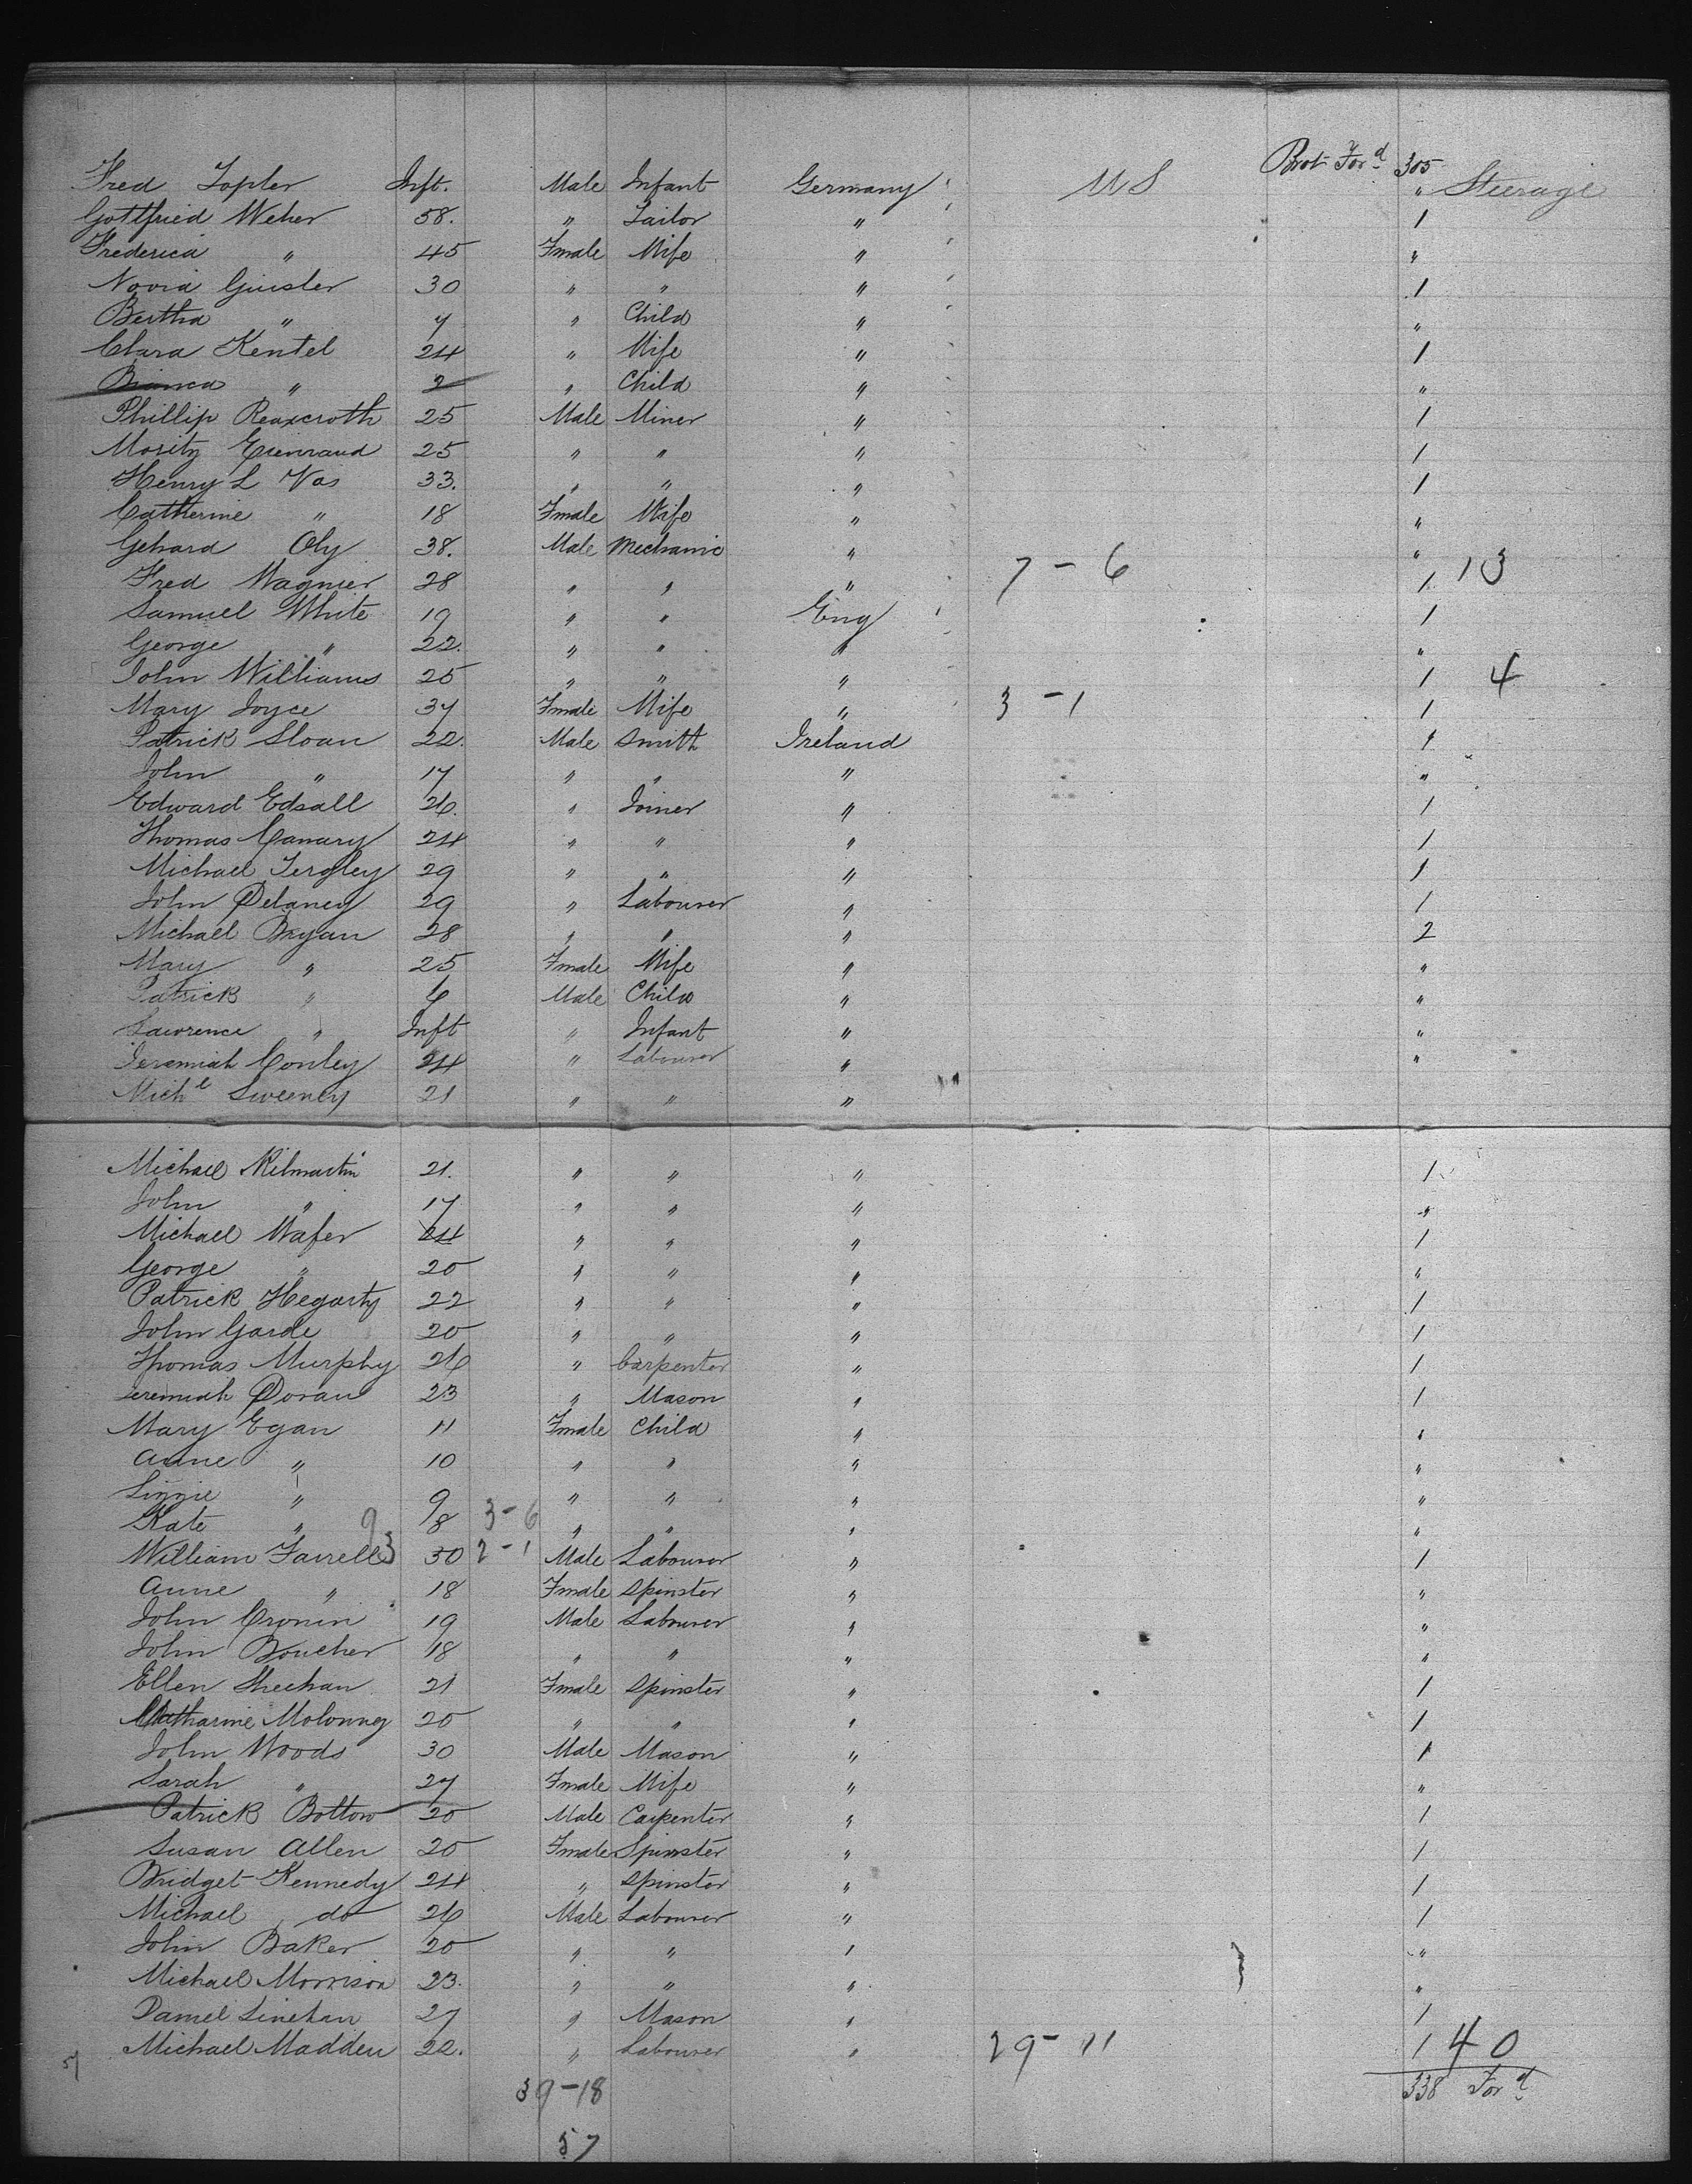 Brot Ford 305
Fred Topler Inft. Male Infant Germany US " Steerage
Gottfried Weher 58. " Tailor " 1
Frederica " 45 Fmale Wife " "
Novia Giusler 30 " " " 1
Bertha " 7 " Child " "
Clara Kentel 24 " Wife " 1
Bianca " 2 " Child " "
Phillip Reaxcroth 25 Male Miner " 1
Moritz 25 " " " 1
Henry L Vos 33. " " " 1
Catherine " 18 Fmale Wife " "
Gehard Oly 38. Male Mechanic " 7-6 " 13
Fred Wagnier 28 " " " 1
Samuel White 19 " " Eng 1
George " 22. " " " "
John Williams 25 " " " 1 4
Mary Joyce 37 Fmale Wife " 3-1 1
Patrick Sloan 22. Male Smith Ireland 1
John " 17 " " " "
Edward Edsall 26. " Joiner " 1
Thomas Canary 24 " " " 1
Michael Tergley 29 " " " 1
John Delaney 29 " Labourer " 1
Michael Bryan 28 " " " 2
Mary " 25 Fmale Wife " "
Patrick " 6 Male Child " "
Lawrence " Inft " Infant " "
Jeremiah Conley 24 " Labourer " "
Michl Sweeney 21 " " "
Michael Kilmartin 21. " " " 1
John " 17 " " " "
Michael Wafer 24 " " " 1
George " 20 " " " "
Patrick Hegarty 22 " " " 1
John Garde 20 " " " 1
Thomas Murphy 26 " Carpenter " 1
Jeremiah Doran 23 " Mason " 1
Mary Egan 11 Fmale Child " "
Anne " 10 " " " "
Lizzie " 9 " " " "
Kate " 9 8 3-6 " " " "
William Farrell 3 30 2-1 Male Labourer " 1
Anne " 18 Fmale Spinster " "
John Cronin 19 Male Labourer " "
John Boucher 18 " " " "
Ellen Sheehan 21 Fmale Spinster " 1
Catharine Molonney 20 " " " 1
John Woods 30 Male Mason " 1
Sarah " 27 Fmale Wife " "
Patrick Bottow 20 Male Carpenter " 1
Susan Allen 20 Fmale Spinster " 1
Bridget Kennedy 24 " Spinster " 1
Michael do 26 Male Labourer " 1
John Baker 20 " " " "
Michael Morrison 23. " " " "
Daniel Linehan 27 " Mason " 1
Michael Madden 22. " Labourer " 29-11 1 40
57 338 Ford
39-18
57